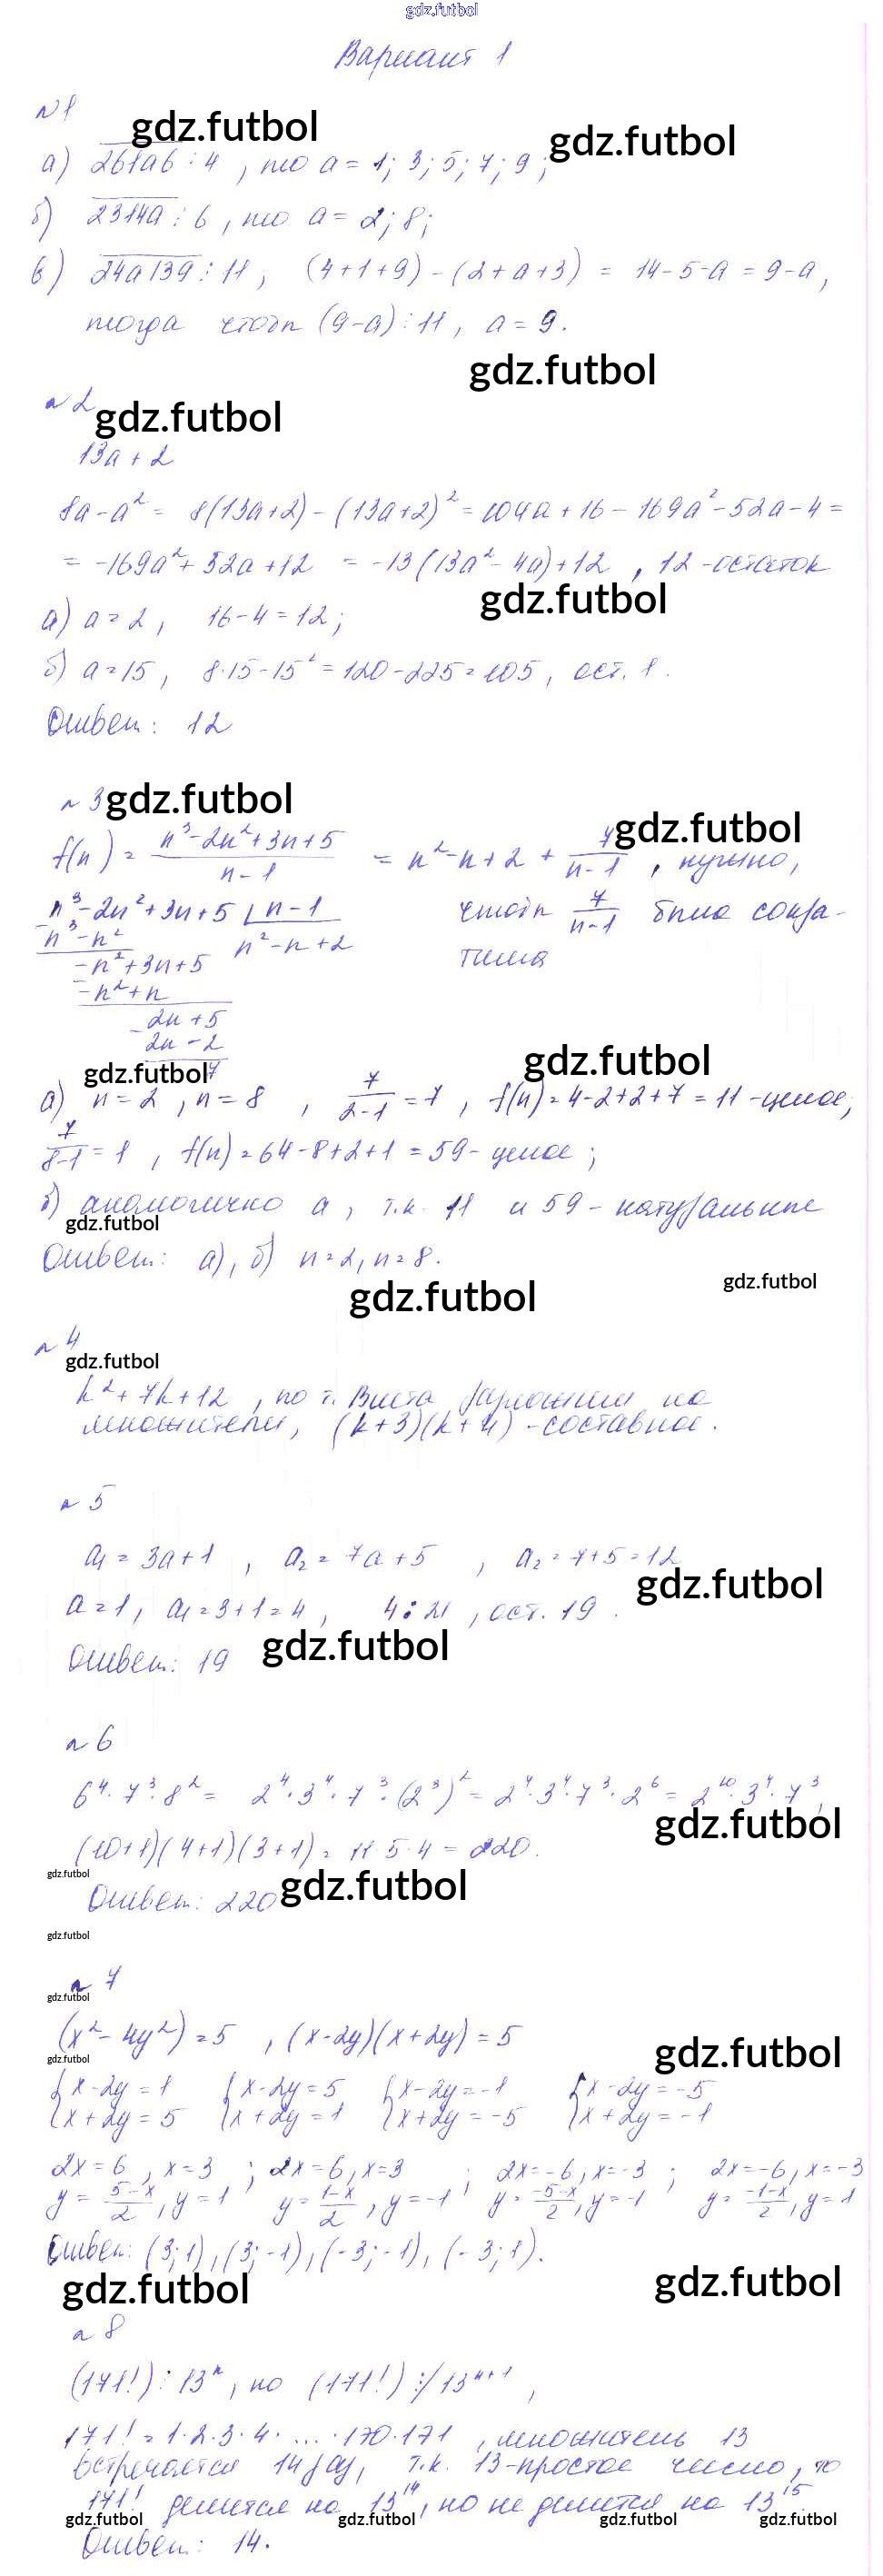 gdz.futbol
Вариант 1
№1
gdz.futbol
gdz.futbol
а) 261а6 ⋮ 4 , то а = 1; 3; 5; 7; 9;
б) 2314а ⋮ 6 , то а = 2; 8;
в) 24а139 ⋮ 11 , (4+1+9) - (2+а+3) = 14-5-а = 9-а,
тогда чтобы (9-а) ⋮ 11, а = 9.
gdz.futbol
№2
gdz.futbol
13а + 2
8а - а² = 8(13а+2) - (13а+2)² = 104а + 16 - 169а² - 52а - 4 =
= -169а² + 52а + 12 = -13(13а² - 4а) + 12 , 12 - остаток
gdz.futbol
а) а = 2 , 16 - 4 = 12 ;
б) а = 15 , 8·15 - 15² = 120 - 225 = 105 , ост. 1.
Ответ: 12
№3
gdz.futbol
gdz.futbol
f(n) = n³-2n²+3n+5 / n-1 = n²-n+2 + 7/n-1 , нужно,
n³-2n²+3n+5 | n-1 чтобы 7/n-1 была сокра-
n³-n² n²-n+2 тима
-n²+3n+5
-n²+n
2n+5
2n-2
7
gdz.futbol
gdz.futbol
а) n = 2 , n = 8 , 7/2-1 = 7 , f(n) = 4-2+2+7 = 11 - целое;
7/8-1 = 1 , f(n) = 64-8+2+1 = 59 - целое ;
б) аналогично а , т.к. 11 и 59 - натуральные
gdz.futbol
Ответ: а), б) n = 2, n = 8.
gdz.futbol
gdz.futbol
№4
gdz.futbol
k² + 7k + 12 , по т. Виета разложим на
множители, (k+3)(k+4) - составное.
№5
а₁ = 3а + 1 , а₂ = 7а + 5 , а₂ = 7+5 = 12
gdz.futbol
а = 1, а₁ = 3+1 = 4 , 4 : 21 , ост. 19 .
Ответ: 19
gdz.futbol
№6
6⁴ · 7³ · 8² = 2⁴ · 3⁴ · 7³ · (2³)² = 2⁴ · 3⁴ · 7³ · 2⁶ = 2¹⁰ · 3⁴ · 7³,
gdz.futbol
(10+1)(4+1)(3+1) = 11·5·4 = 220.
gdz.futbol
Ответ: 220
gdz.futbol
gdz.futbol
№7
gdz.futbol
(x² - 4y²) = 5 , (x-2y)(x+2y) = 5
gdz.futbol
gdz.futbol
{x-2y = 1 {x-2y = 5 {x-2y = -1 {x-2y = -5
{x+2y = 5 {x+2y = 1 {x+2y = -5 {x+2y = -1
2x = 6 , x = 3 ; 2x = 6, x = 3 ; 2x = -6, x = -3 ; 2x = -6, x = -3
y = 5-x/2 , y = 1 y = 1-x/2 , y = -1 y = -5-x/2 , y = -1 y = -1-x/2 , y = 1
Ответ: (3; 1), (3; -1), (-3; -1), (-3; 1).
gdz.futbol
gdz.futbol
№8
(171!) ⋮ 13ⁿ, но (171!) ⋮̸ 13ⁿ⁺¹ ,
171! = 1·2·3·4· ... ·170·171 , множитель 13
встречается 14 раз, т.к. 13 - простое число, то
171! делится на 13¹⁴, но не делится на 13¹⁵.
gdz.futbol
gdz.futbol
gdz.futbol
gdz.futbol
Ответ: 14.